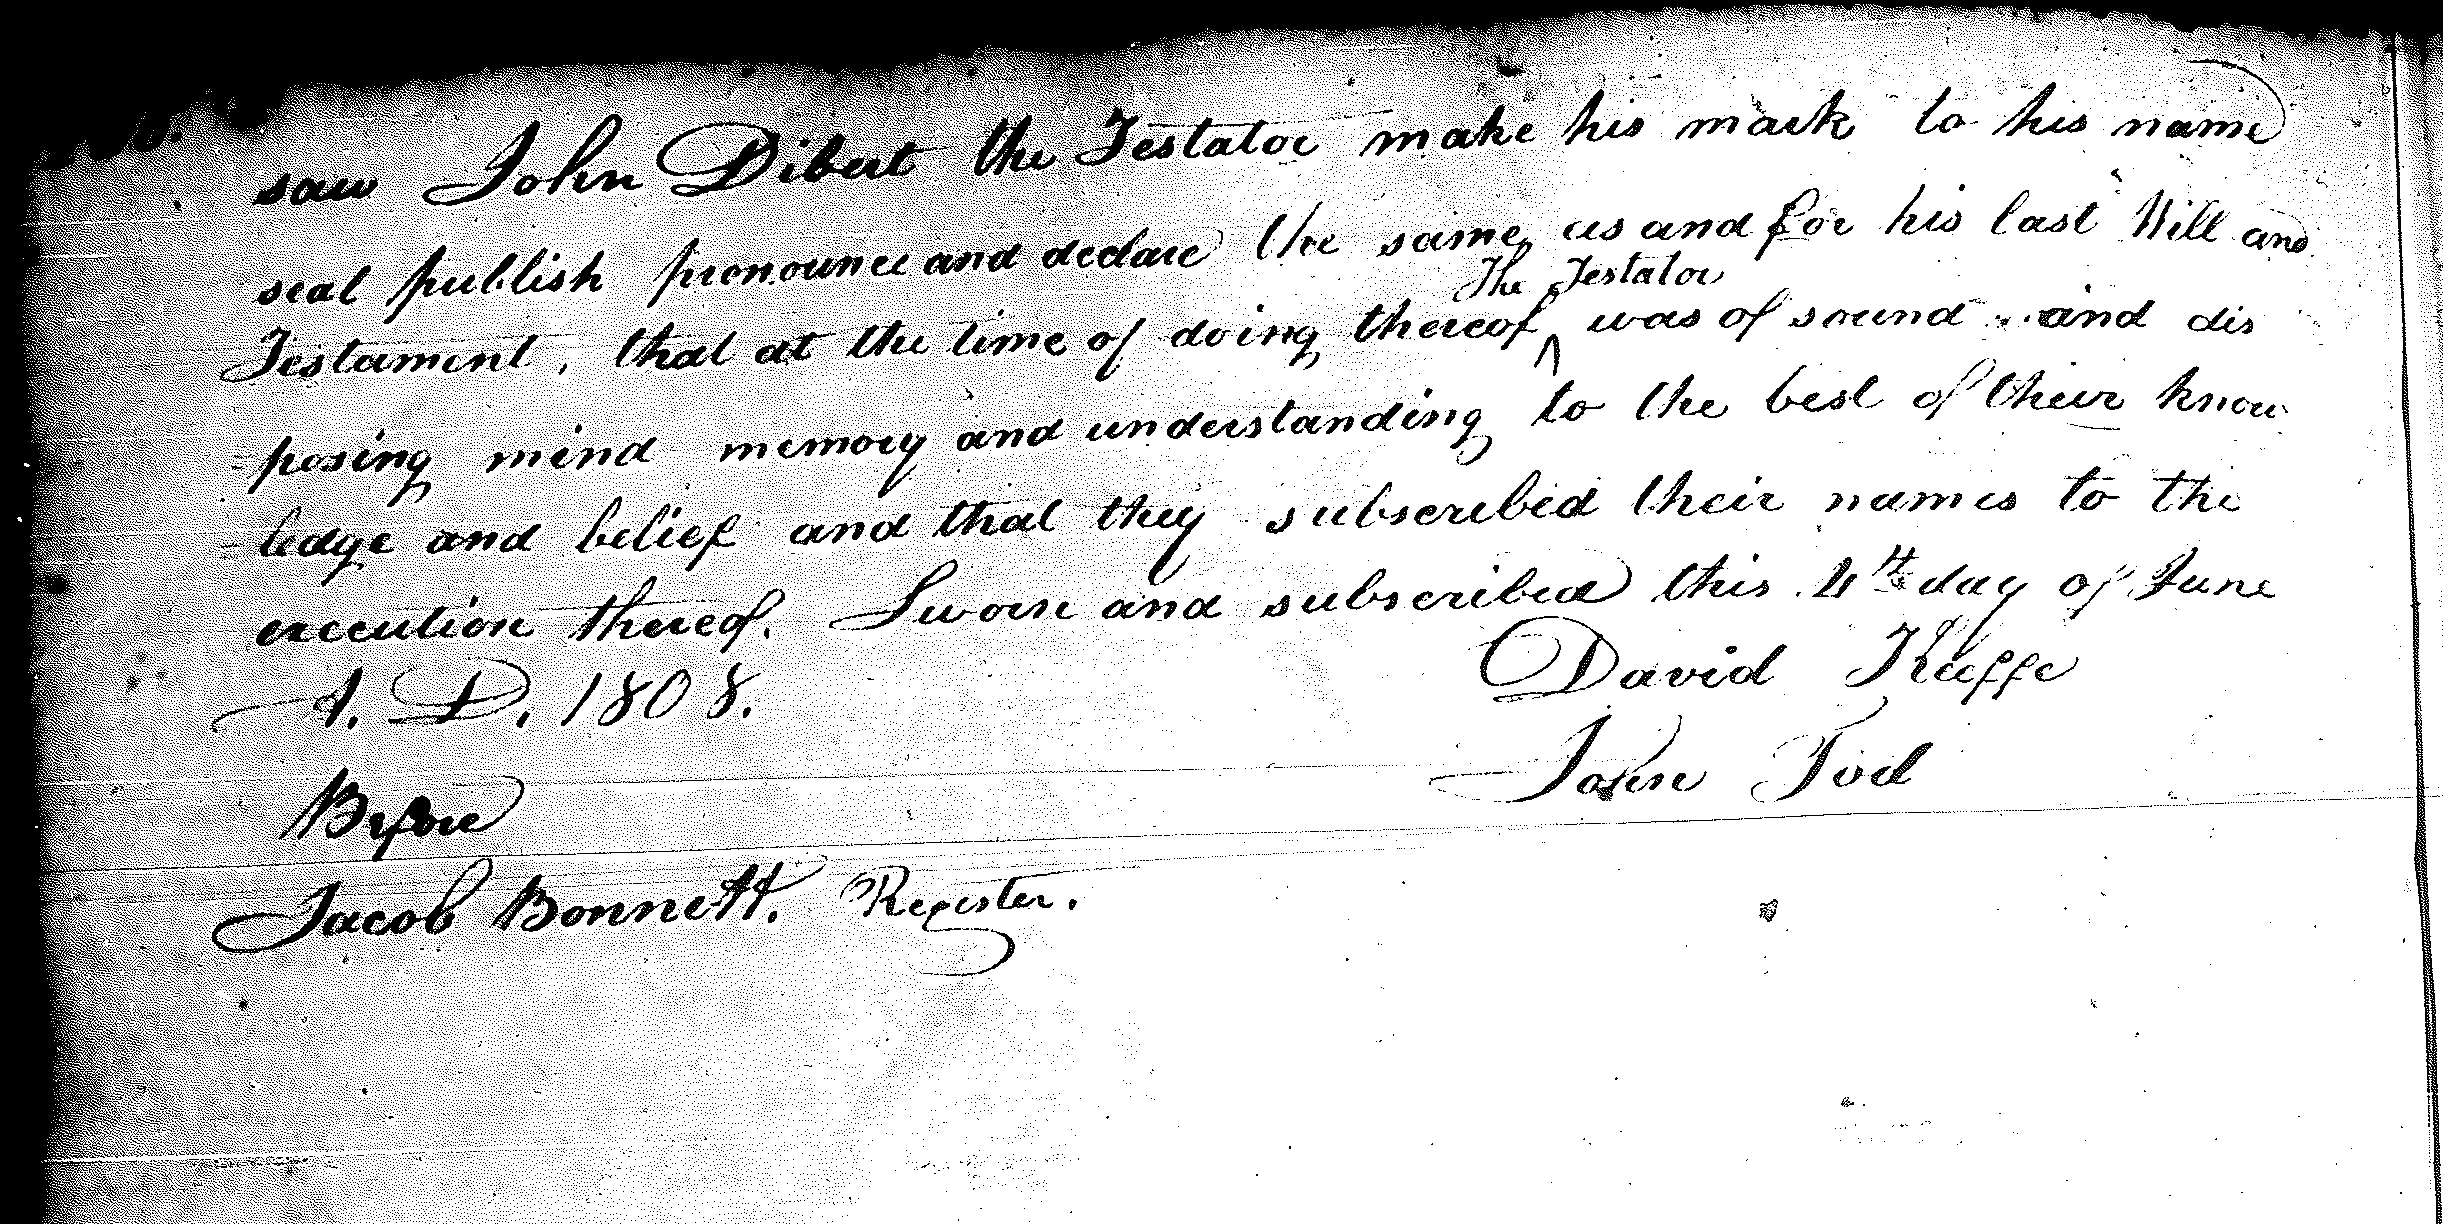 saw John Dibert the Testator make his mark to his name
seal publish pronounce and declare the same, as and for his last Will and
The Testator
Testament, that at the time of doing thereof ^ was of sound and dis
posing mind memory and understanding to the best of their know
ledge and belief and that they subscribed their names to the
execution thereof. Sworn and subscribed this 4th day of June
A. D. 1808.
David Keeffe
John Tod
Before
Jacob Bonnett. Register.